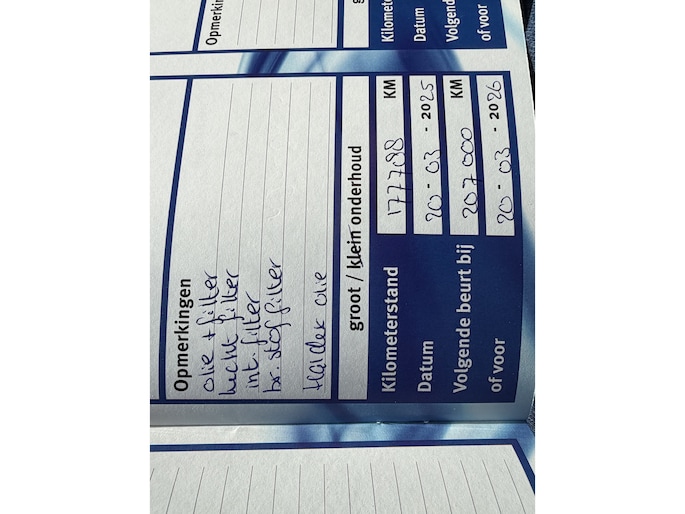 Opmerkingen
olie + filter
lucht filter
int. filter
br. stof filter
Haldex olie
groot / klein onderhoud
Kilometerstand 177788 KM
Datum 20 - 03 - 2025
Volgende beurt bij 207000 KM
of voor 20 - 03 - 2026
Opmerkin
g
Kilomete
Datum
Volgend
of voor